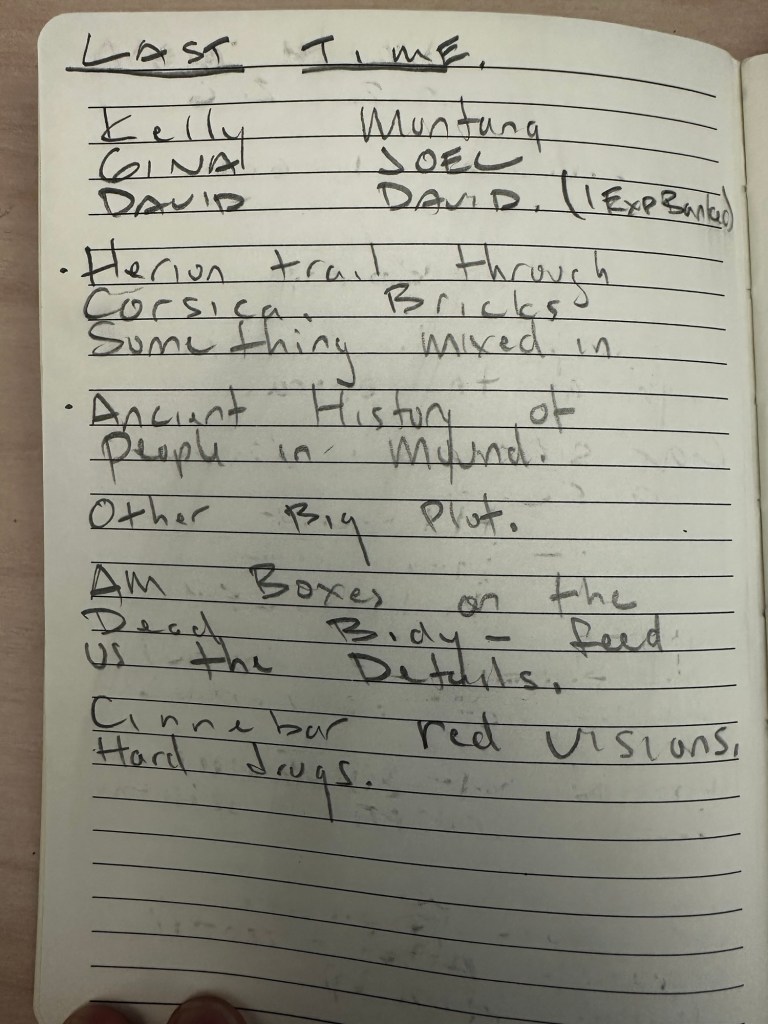 LAST TIME.
Kelly Muntang
GINA JOEL
DAVID DAVID. (1 Exp Banked)
· Herion trail through
Corsica. Bricks
Something mixed in
· Ancient History of
People in Mound.
Other Big Plot.
AM Boxes on the
Dead Body - feed
us the Details.
Cinnebar red visions.
Hard drugs.